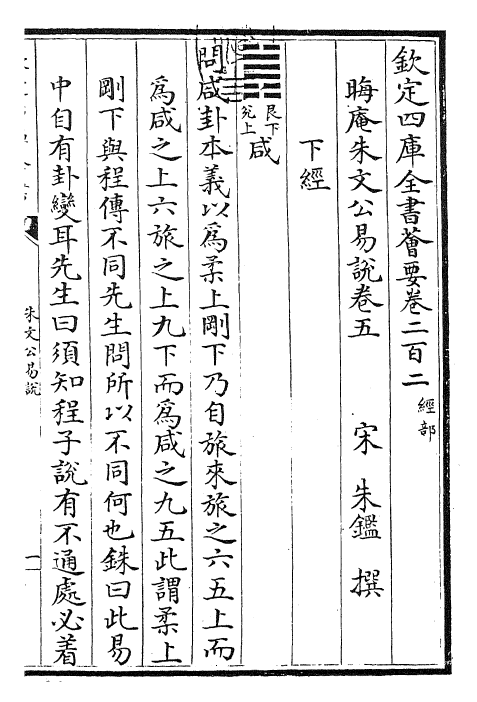 欽定四庫全書薈要卷二百二 經部
晦庵朱文公易說卷五 宋 朱鑑 撰
下經
艮下
兊上
咸
問咸卦本義以為柔上剛下乃自旅來旅之六五上而
為咸之上六旅之上九下而為咸之九五此謂柔上
剛下與程傳不同先生問所以不同何也銖曰此易
中自有卦變耳先生曰須知程子說有不通處必着
朱文公易說
一